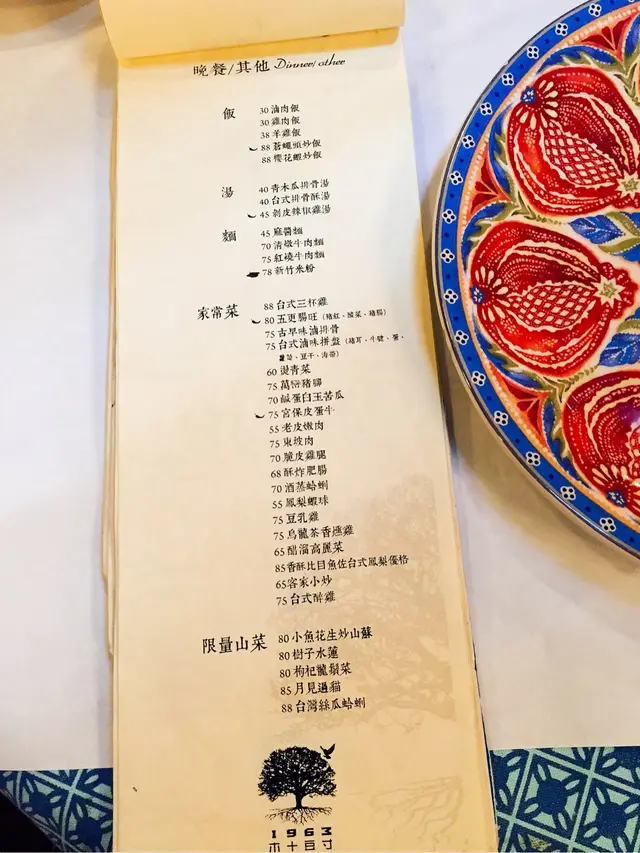 晚餐/其他 Dinner/other
飯
30 滷肉飯
30 雞肉飯
38 羊雞飯
88 蒼蠅頭炒飯
88 櫻花蝦炒飯
湯
40 青木瓜排骨湯
40 台式排骨酥湯
45 剝皮辣椒雞湯
麵
45 麻醬麵
70 清燉牛肉麵
75 紅燒牛肉麵
78 新竹米粉
家常菜
88 台式三杯雞
80 五更腸旺 (豬紅、酸菜、豬腸)
75 古早味滷排骨
75 台式滷味拼盤 (豬耳、牛腱、蛋、
豆干、海帶)
60 燙青菜
75 萬巒豬腳
70 鹹蛋白玉苦瓜
75 宮保皮蛋牛
55 老皮嫩肉
75 東坡肉
70 脆皮雞腿
68 酥炸肥腸
70 酒蒸蛤蜊
55 鳳梨蝦球
75 豆乳雞
75 烏龍茶香燻雞
65 醋溜高麗菜
85 香酥比目魚佐台式鳳梨優格
65 客家小炒
75 台式醉雞
限量山菜
80 小魚花生炒山蘇
80 樹子水蓮
80 枸杞龍鬚菜
85 月見過貓
88 台灣絲瓜蛤蜊
1963